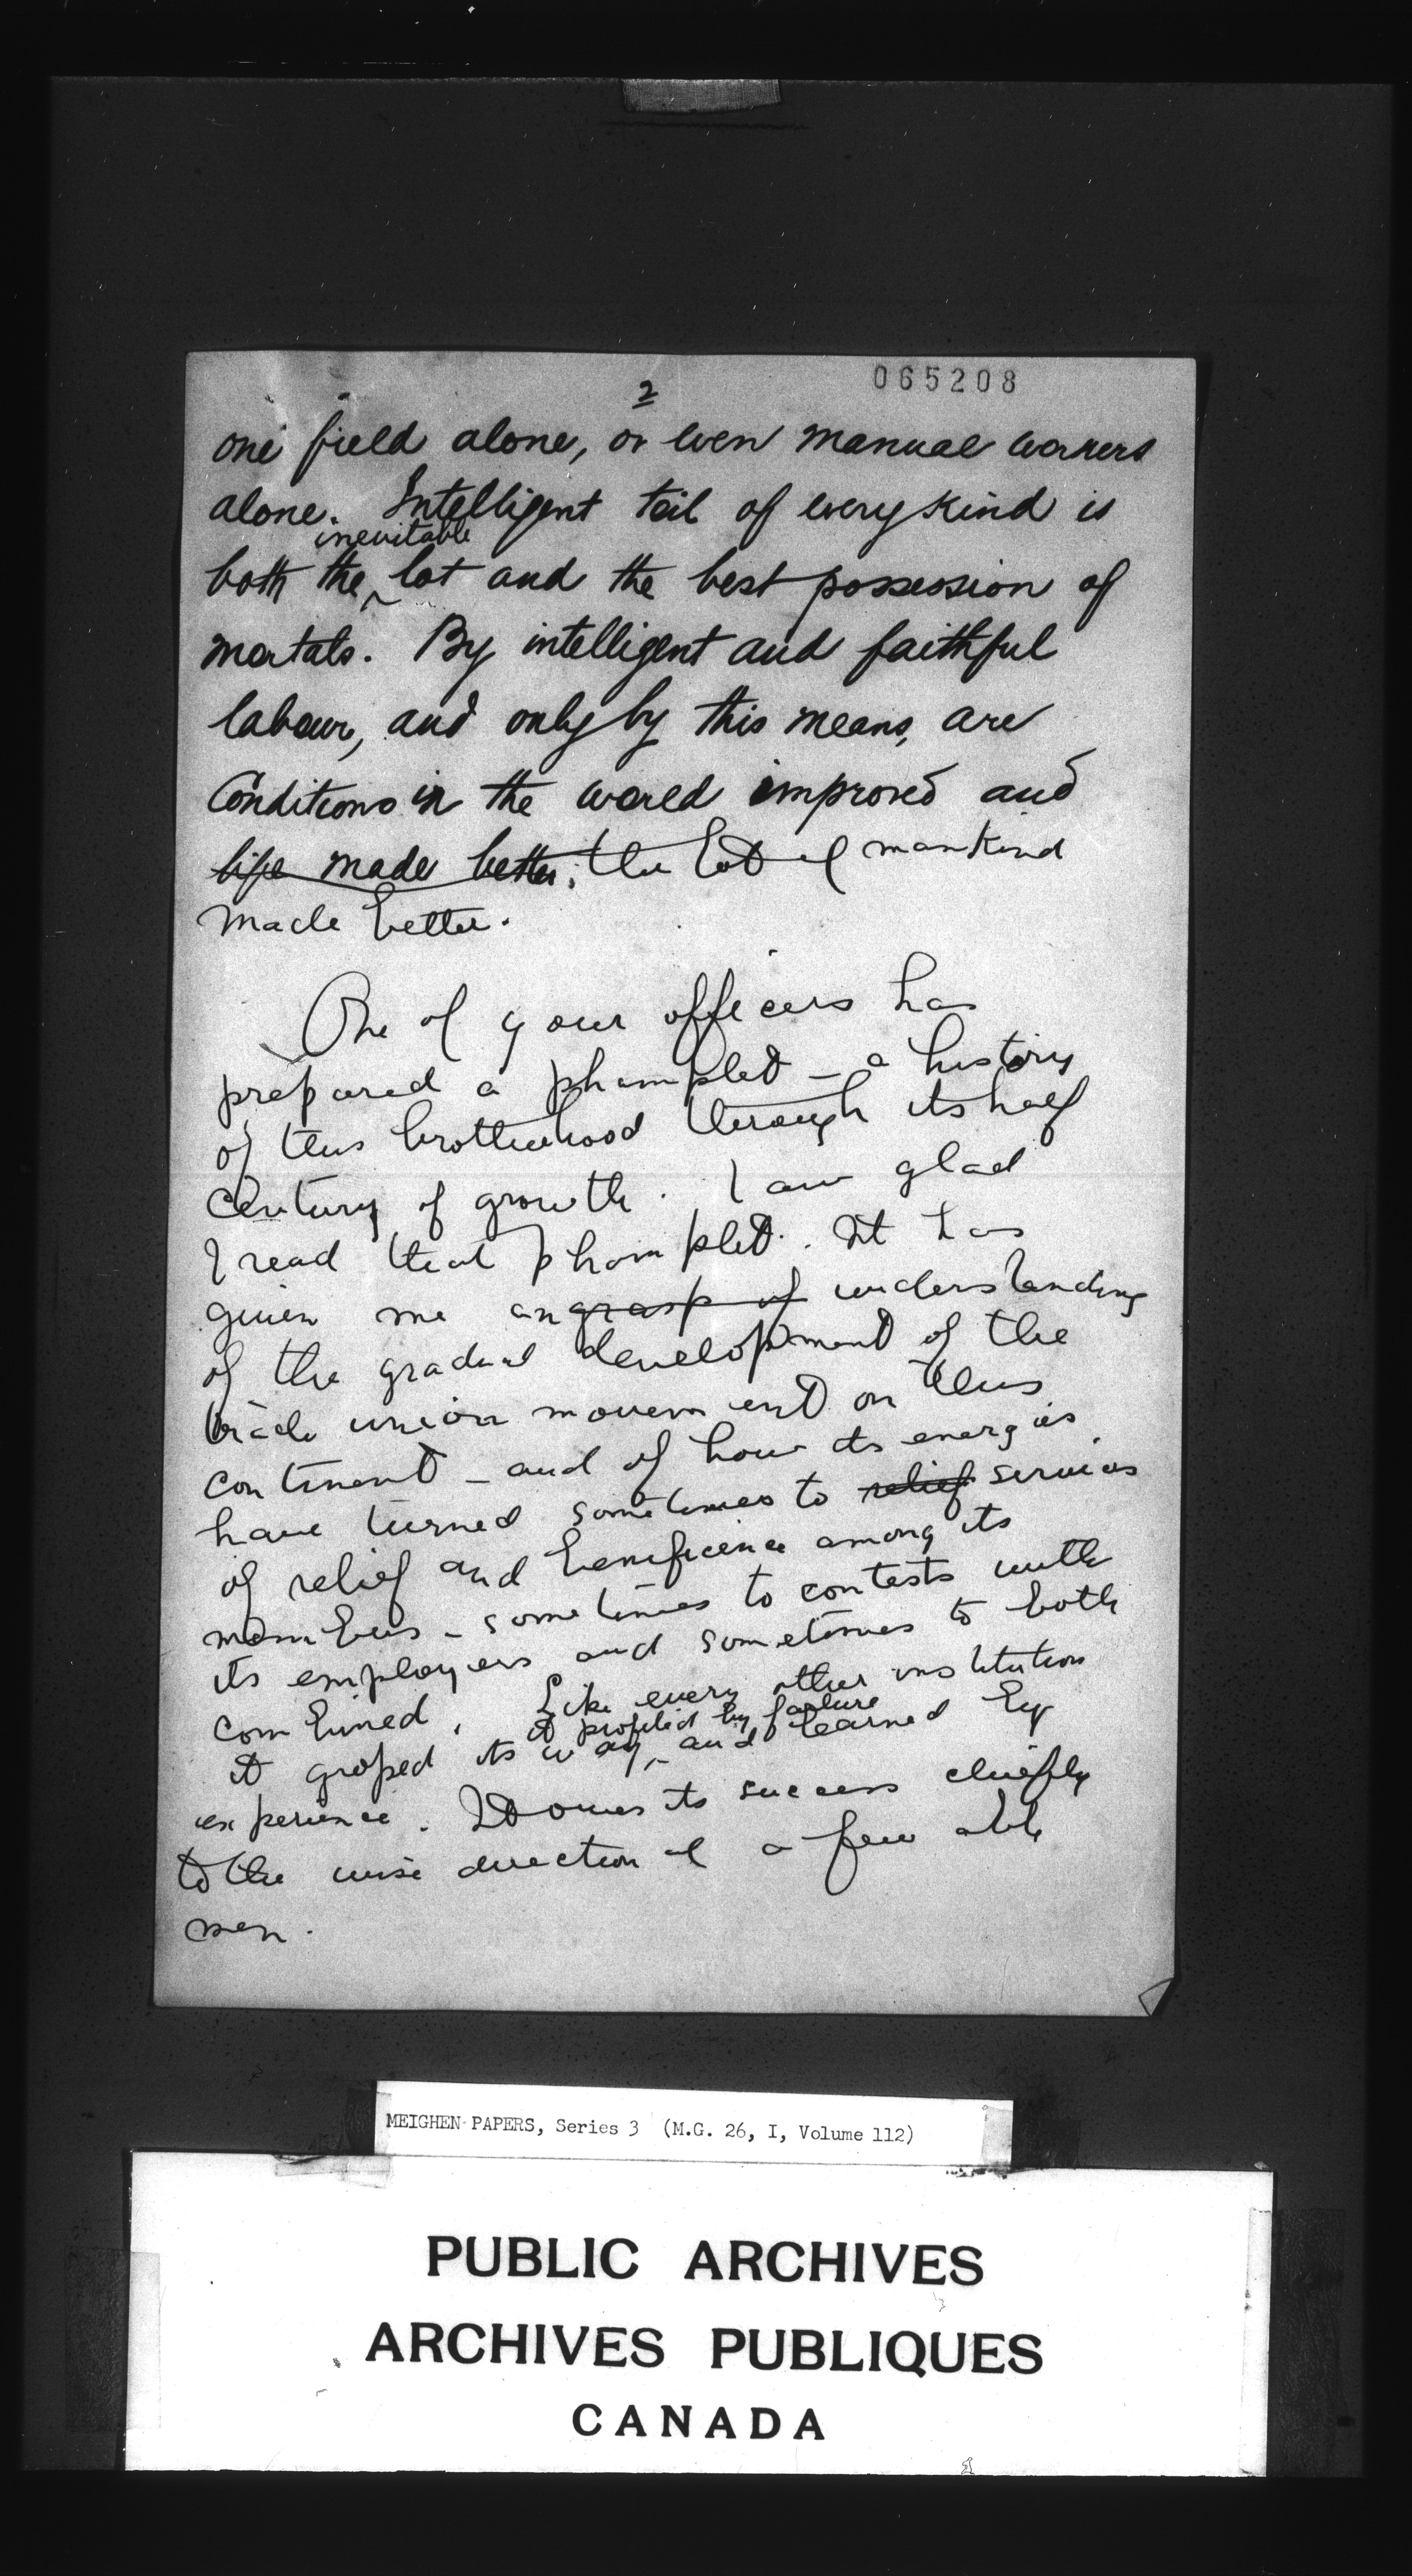 065208
2
one field alone, or even manual workers
alone. Intelligent toil of every kind is
inevitable
both the lot and the best possession of
mortals. By intelligent and faithful
labour, and only by this means, are
Conditions in the world improved and
life made better; the lot of mankind
made better.
One of your officers has
prepared a phamplet - a history
of this brotherhood through its half
century of growth. I am glad
I read that phamplet. It has
given me an grasp of understanding
of the gradual development of the
trade union movement on this
continent - and of how its energies
have turned sometimes to relief services
of relief and beneficence among its
members - sometimes to contests with
its employers and sometimes to both
combined. Like every other institution
it profited by failure
it groped its way, and learned by
experience. It owes its success chiefly
to the wise direction of a few able
men.
MEIGHEN PAPERS, Series 3 (M.G. 26, I, Volume 112)
PUBLIC ARCHIVES
ARCHIVES PUBLIQUES
CANADA